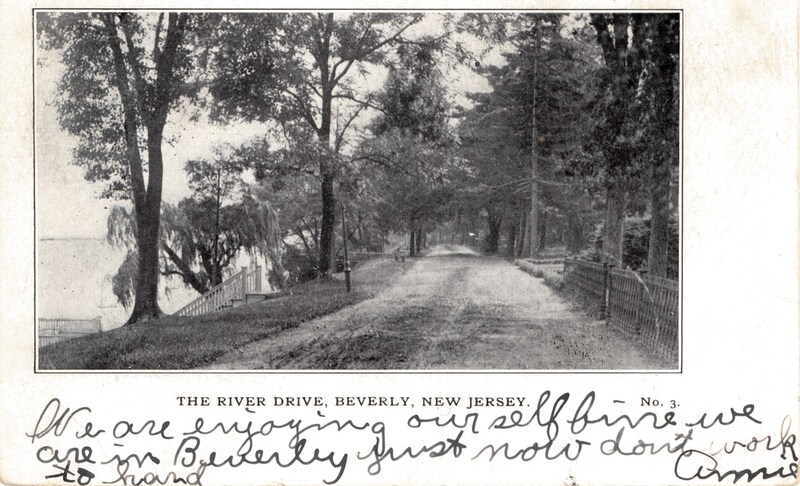 THE RIVER DRIVE, BEVERLY, NEW JERSEY. No. 3.
We are enjoying our self fine we
are in Beverley just now dont work
to hard Annie